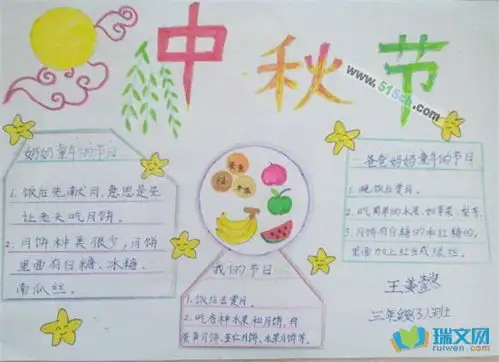 中秋节
www.515cn.com
奶奶童年的节日
1.饭后先献月,意思是先
让老天吃月饼。
2.月饼种类很少,月饼
里面有白糖、冰糖、
南瓜丝。
我的节日
1.饭后去赏月。
2.吃各种水果和月饼,有
蛋黄月饼、五仁月饼、水果月饼等。
爸爸妈妈童年的节日
1.晚饭后赏月。
2.吃简单的水果,如苹果、梨等
3.月饼有白糖的和红糖的,
里面加上红丝或绿丝。
三年级(3)班
瑞文网
ruiwen.com